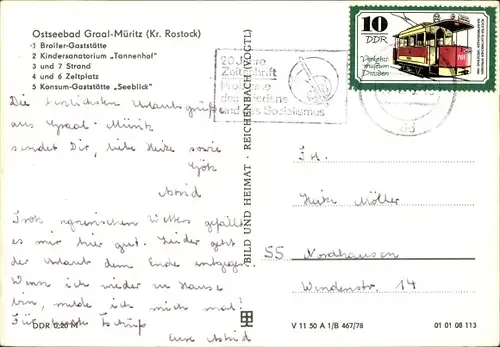 Ostseebad Graal-Müritz (Kr. Rostock)
1 Broiler-Gaststätte
2 Kindersanatorium „Tannenhof"
3 und 7 Strand
4 und 6 Zeltplatz
5 Konsum-Gaststätte „Seeblick"
20 Jahre
Zeitschrift
Probleme
des Friedens
und des Sozialismus
10
DDR
Verkehrs
museum
Dresden
Die herzlichsten Urlaubsgrüße
aus Graal-Müritz
sendet Dir, liebe Heike sowie
Götz
Astrid
Trotz regnerischen Wetters gefällt
es mir hier gut. Leider geht
der Urlaub dem Ende entgegen.
Wenn ich wieder zu Hause
bin, melde ich mich mal!
Für heute Tschüß
Eure Astrid
DDR 0,20 M
BILD UND HEIMAT · REICHENBACH (VOGTL)
Frl.
Heike Möller
55 Nordhausen
Windenstr. 14
V 11 50 A 1/B 467/78
01 01 08 113